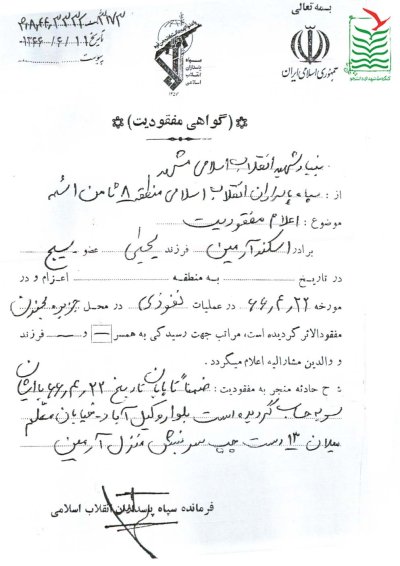 بسمه تعالی
جمهوری اسلامی ایران
سپاه
پاسداران
انقلاب
اسلامی
تاریخ ۱۳۶۶/۶/۱۱
پیوست
(گواهی مفقودیت)
بنیاد شهید انقلاب اسلامی مشهد
از : سپاه پاسداران انقلاب اسلامی منطقه ۸ ثامن الائمه
موضوع : اعلام مفقودیت
برادر اسکندر آرمین فرزند یحیی عضو بسیج
در تاریخ به منطقه اعزام و در
مورخه ۶۶٫۴٫۲۲ در عملیات نفوذی در محل جزیره مجنون
مفقودالاثر گردیده است، مراتب جهت رسیدگی به همسر — و — فرزند
و والدین مشارالیه اعلام میگردد.
شرح حادثه منجر به مفقودیت : ضمناً تا پایان تاریخ ۶۶٫۴٫۲۲ با ایشان
تسویه حساب گردیده است بلوار وکیل آباد - خیابان معلم
میلان ۱۳ دست چپ سر نبش منزل آرمین
فرمانده سپاه پاسداران انقلاب اسلامی